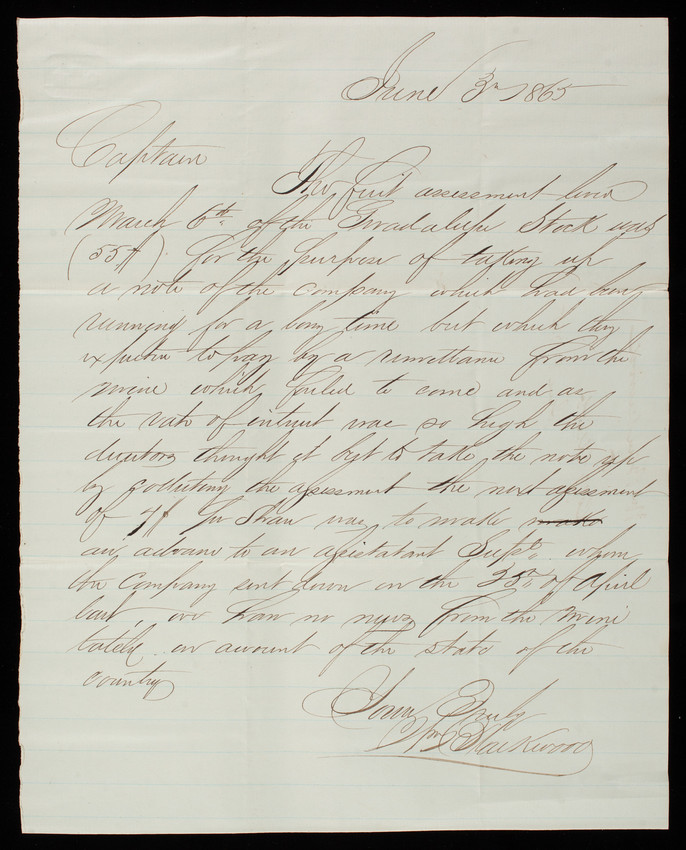 June 3rd 1865
Captain
The first assessment levied
March 6th of the Guadalupe Stock was
(55¢). for the purpose of taking up
a note of the company which had been
running for a long time but which they
expected to pay by a remittance from the
mine which failed to come and as
the rate of interest was so high the
directors thought it best to take the note up
by collecting the assessment the next assessment
of pr Share was to make make
an advance to an assistant Supt. whom
the Company sent down on the 25th of April
last, we have no news from the mine
lately on account of the state of the
country
Yours Truly
Wm Blackwood